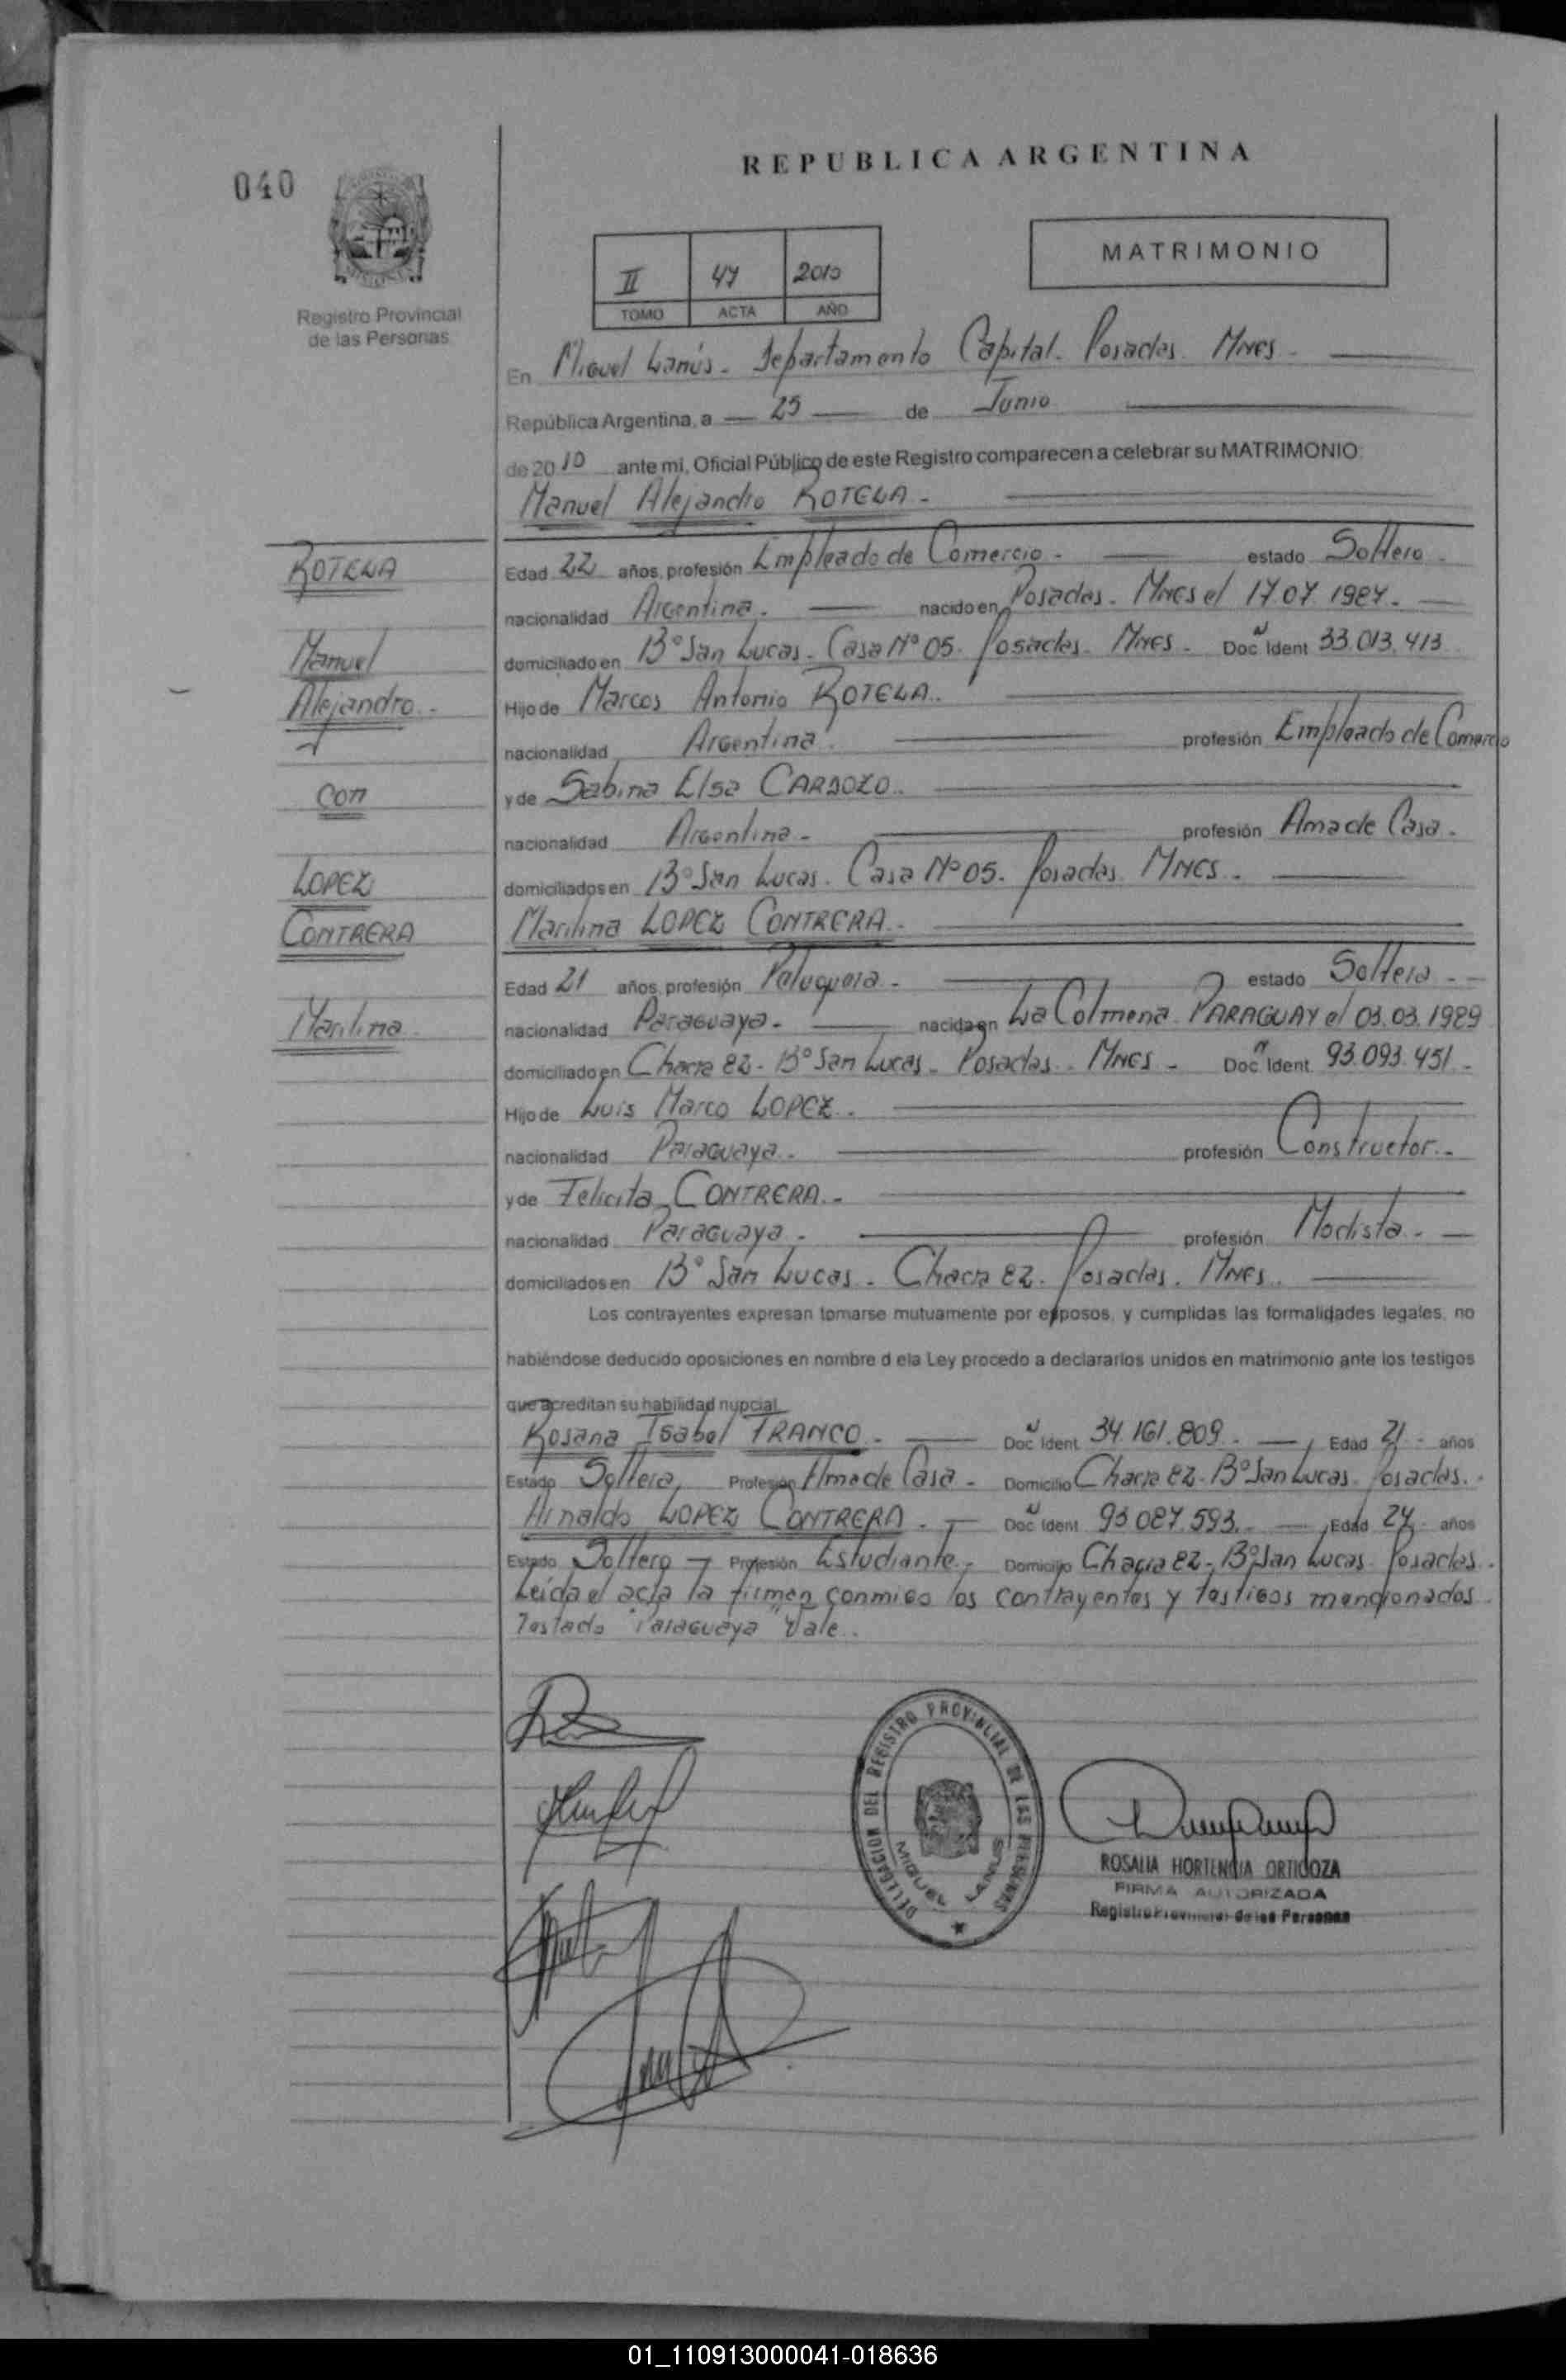 REPUBLICA ARGENTINA
040
MATRIMONIO
II 47 2010
TOMO ACTA AÑO
Registro Provincial
de las Personas
En Miguel Lanús - Departamento Capital - Posadas. Mnes -
República Argentina, a 25 de Junio
de 2010 ante mi, Oficial Público de este Registro comparecen a celebrar su MATRIMONIO:
Manuel Alejandro ROTELA -
ROTELA
Manuel
Alejandro -
con
LOPEZ
CONTRERA
Marilina
Edad 22 años, profesión Empleado de Comercio - estado Soltero -
nacionalidad Argentina. nacido en Posadas. Mnes el 17.07.1987.
domiciliado en B° San Lucas - Casa N° 05. Posadas. Mnes - Doc. Ident 33.013.413
Hijo de Marcos Antonio ROTELA.
nacionalidad Argentina profesión Empleado de Comercio
y de Sabina Elsa CARDOZO.
nacionalidad Argentina - profesión Ama de Casa.
domiciliados en B° San Lucas. Casa N° 05. Posadas Mnes.
Marilina LOPEZ CONTRERA.
Edad 21 años, profesión Peluquera - estado Soltera -
nacionalidad Paraguaya. nacida en La Colmena PARAGUAY el 03.03.1989
domiciliado en Chacra 82 - B° San Lucas - Posadas - Mnes - Doc. Ident. 93.093.451 -
Hijo de Luis Marco LOPEZ.
nacionalidad Paraguaya. profesión Constructor.
y de Felicita CONTRERA.
nacionalidad Paraguaya. profesión Modista.
domiciliados en B° San Lucas. Chacra 82. Posadas. Mnes.
Los contrayentes expresan tomarse mutuamente por esposos, y cumplidas las formalidades legales, no
habiéndose deducido oposiciones en nombre d ela Ley procedo a declararlos unidos en matrimonio ante los testigos
que acreditan su habilidad nupcial
Rosana Isabel FRANCO. Doc. Ident. 34.161.809. Edad 21 - años
Estado Soltera Profesión Ama de Casa - Domicilio Chacra 82 - B° San Lucas - Posadas.
Arnaldo LOPEZ CONTRERA. Doc. Ident. 93.087.593. Edad 24 años
Estado Soltero - Profesión Estudiante, Domicilio Chacra 82 - B° San Lucas - Posadas.
Leída el acta la firman conmigo los contrayentes y testigos mencionados.
Testado "Paraguaya" Vale.
DELEGACION DEL REGISTRO PROVINCIAL DE LAS PERSONAS
MIGUEL LANUS
ROSALIA HORTENCIA ORTIGOZA
FIRMA AUTORIZADA
Registro Provincial de las Personas
01_110913000041-018636